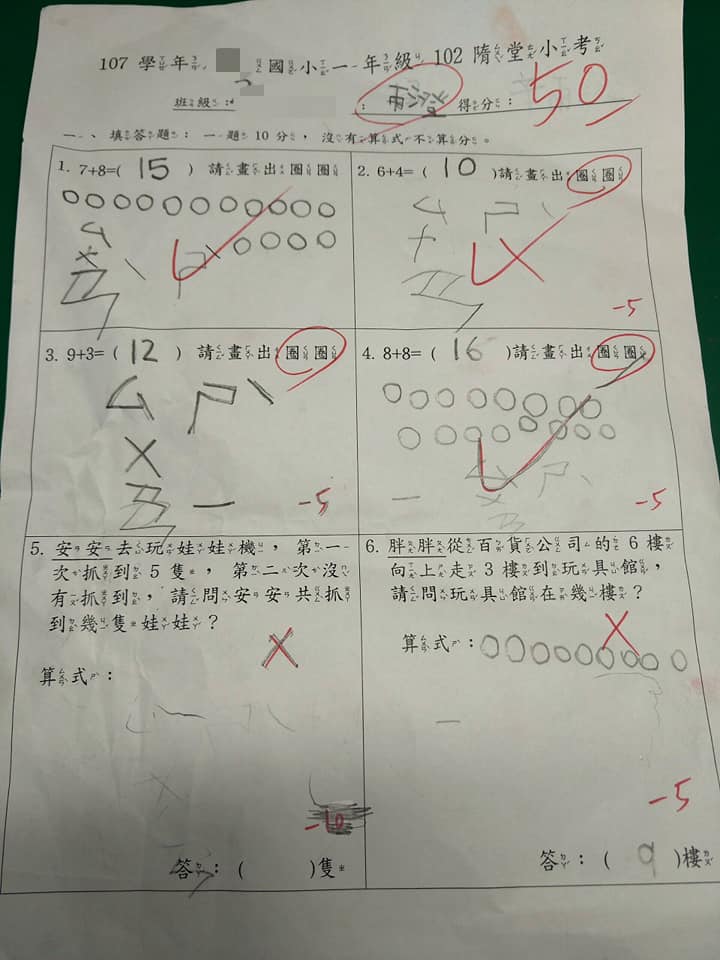 107 學年 國小一年級 102 隋堂小考
班級： 得分：50
一、填答題：一題 10 分，沒有算式不算分。
1. 7+8=( 15 ) 請畫出圈圈
2. 6+4=( 10 )請畫出圈圈
-5
3. 9+3=( 12 ) 請畫出圈圈
ㄙ ㄕˋ
ㄨ
ㄢ
-5
4. 8+8=( 16 )請畫出圈圈
-5
5. 安安去玩娃娃機，第一
次抓到 5 隻，第二次沒
有抓到，請問安安共抓
到幾隻娃娃？
算式：
答：( )隻
6. 胖胖從百貨公司的 6 樓
向上走 3 樓到玩具館，
請問玩具館在幾樓？
算式：
-5
答：( 9 )樓